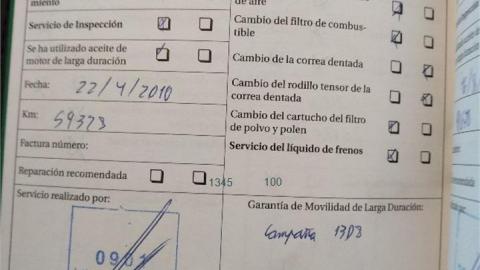 miento
Servicio de Inspección
Se ha utilizado aceite de
motor de larga duración
Fecha: 22/4/2010
Km: 59323
Factura número:
Reparación recomendada
1345 100
Servicio realizado por:
de aire
Cambio del filtro de combus-
tible
Cambio de la correa dentada
Cambio del rodillo tensor de la
correa dentada
Cambio del cartucho del filtro
de polvo y polen
Servicio del líquido de frenos
Garantía de Movilidad de Larga Duración:
Campaña 13D3
por: